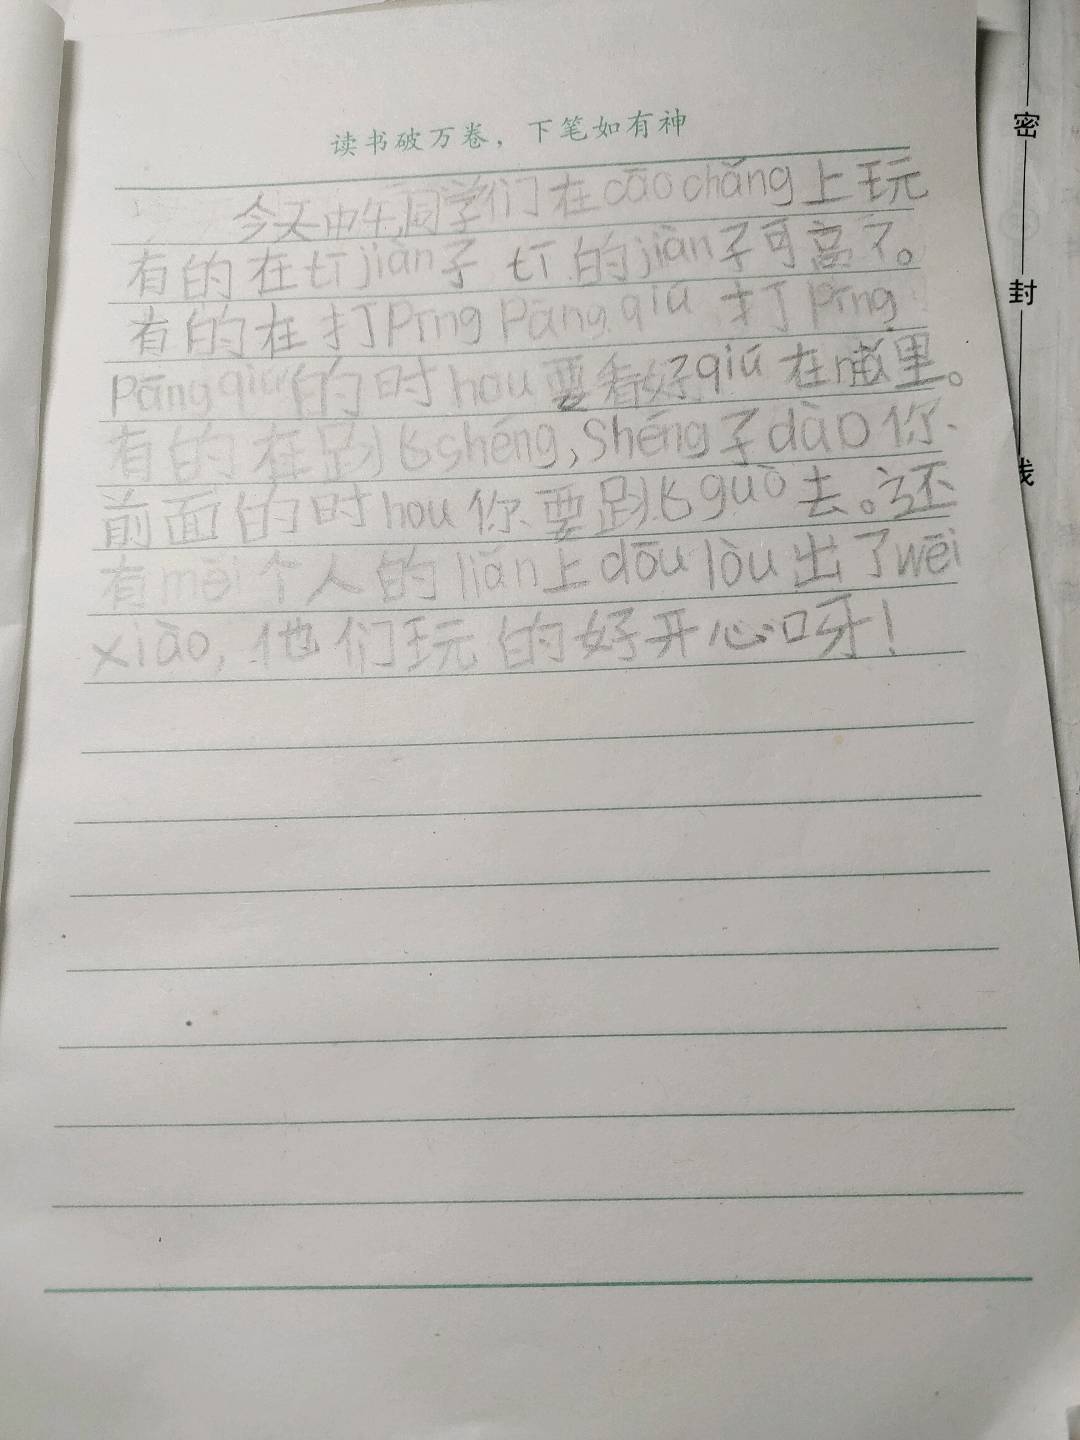 读书破万卷，下笔如有神
今天中午,同学们在cāo chǎng上玩
有的在tī jiàn子 tī的jiàn子可高了。
有的在打Pīng Pāng qiú 打Pīng
Pāng qiú的时hou要看好qiú在哪里。
有的在跳shéng,Shéng子dào你
前面的时hou你要跳guò去。还
有měi个人的liǎn上dōu lòu出了wēi
xiào,他们玩的好开心呀!
密
封
线